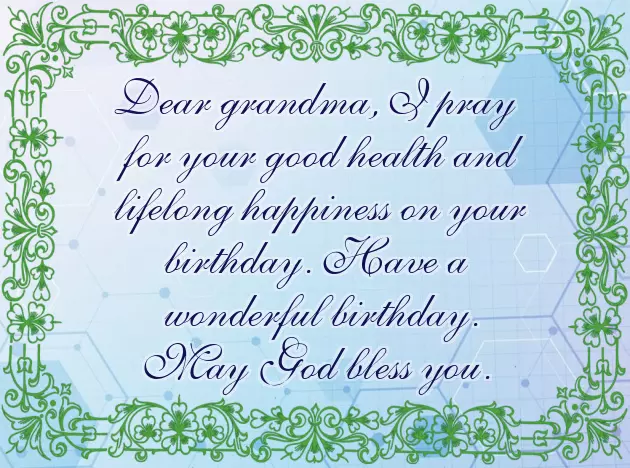 Dear grandma, I pray
for your good health and
lifelong happiness on your
birthday. Have a
wonderful birthday.
May God bless you.